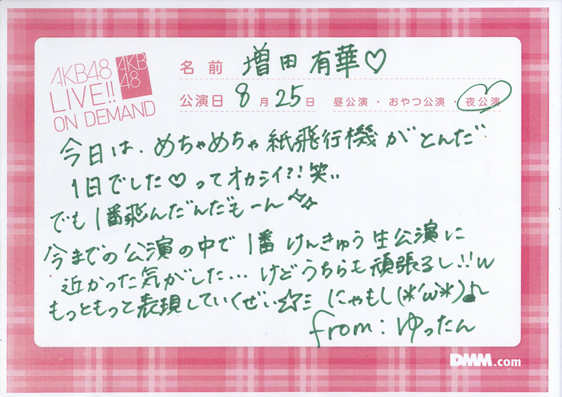 AKB48
LIVE!!
ON DEMAND
AKB
48
名前 増田有華♡
公演日 8月25日 昼公演・おやつ公演・夜公演
今日は、めちゃめちゃ紙飛行機がとんだ
1日でした♡ってオカシイ?!笑..
でも1番飛んだんだもーん
今までの公演の中で1番けんきゅう生公演に
近かった気がした…けどうちらも頑張るし!!w
もっともっと表現していくぜい☆ミ にゃもし(*'ω'*)♪
from:ゆったん
DMM.com